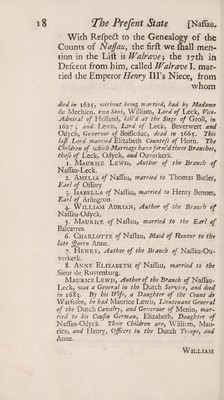 18 The Present State [Nassau.
With Respect to the Genealogy of the
Counts of Nassau, the first we shall men-
tion in the List is Walrave; the 17th in
Descent from him, called Walrave I. mar-
ried the Emperor Henry III's Niece, from
whom
died in 1625, without being married, had by Madame
de Mechlen, two Sons, William, Lord of Leck, Vice-
Admiral of Holland, kill'd at the Siege of Groll, in
1627; and Lewis, Lord of Leck, Beverweert and
Odyck, Governor of Bolsleduc, died in 1665. The
last Lord married Elizabeth Countess of Horn. The
Children of which Marriage have form'd three Branches,
those of Leck, Odyck, and Ouverkerk.
1. Maurice Lewis, Author of the Branch of
Nassau-Leck.
2. Amelia of Nassau, married to Thomas Butler,
Earl of Ossory.
3. Isabella of Nassau, married to Henry Bennet,
Earl of Arlington.
4. William Adrian, Author of the Branch of
Nassau-Odyck.
5. Maurice of Nassau, married to the Earl of
Balcarres.
6. Charlotte of Nassau, Maid of Honour to the
late Queen Anne.
7. Henry, Author of the Branch of Nassau-Ou-
verkerk.
8. Anne Elizabeth of Nassau, married to the
Sieur de Ruytenburg.
Maurice Lewis, Author of the Branch of Nassau-
Leck, was a General in the Dutch Service, and died
in 1683. By his Wife, a Daughter of the Count de
Warfusée, he had Maurice Lewis, Lieutenant General
of the Dutch Cavalry, and Governor of Menin, mar-
ried to his Cousin German, Elizabeth, Daughter of
Nassau-Odyck. Their Children are, William, Mau-
rice, and Henry, Officers in the Dutch Troops, and
Anne.
William